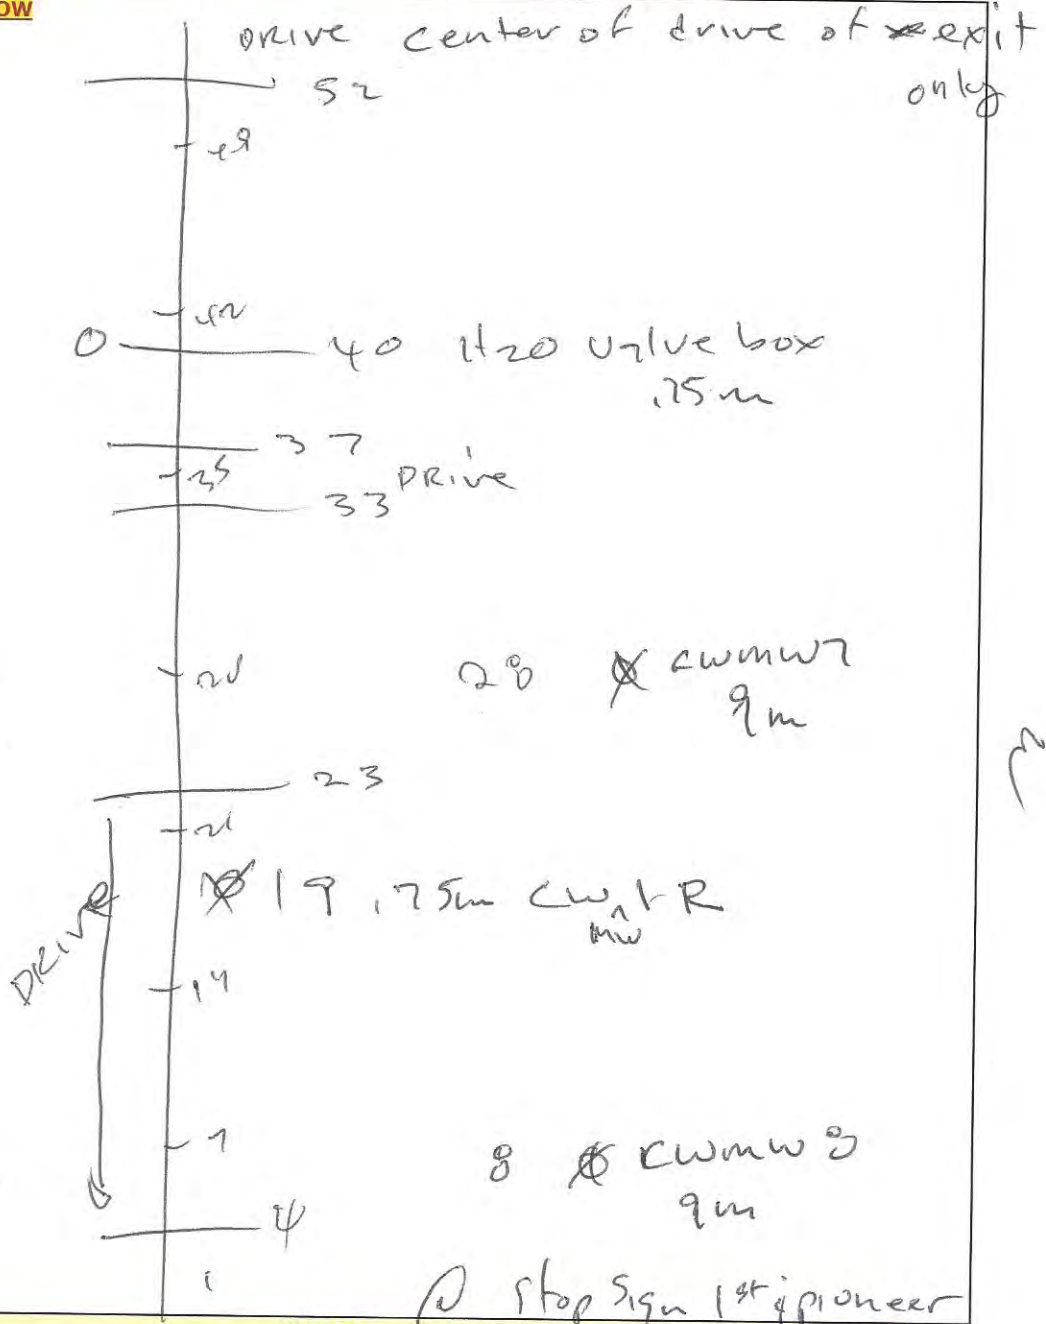 ow
DRIVE center of drive of exit
only
52
49
42
0 40 H20 valve box
.75m
37
35
DRIVE
33
28
28 CWMW7
9m
23
21
DRIVE
19 .75m CW MW 1R
14
7
8 CWMW8
9m
4
@ stop sign 1st & pioneer